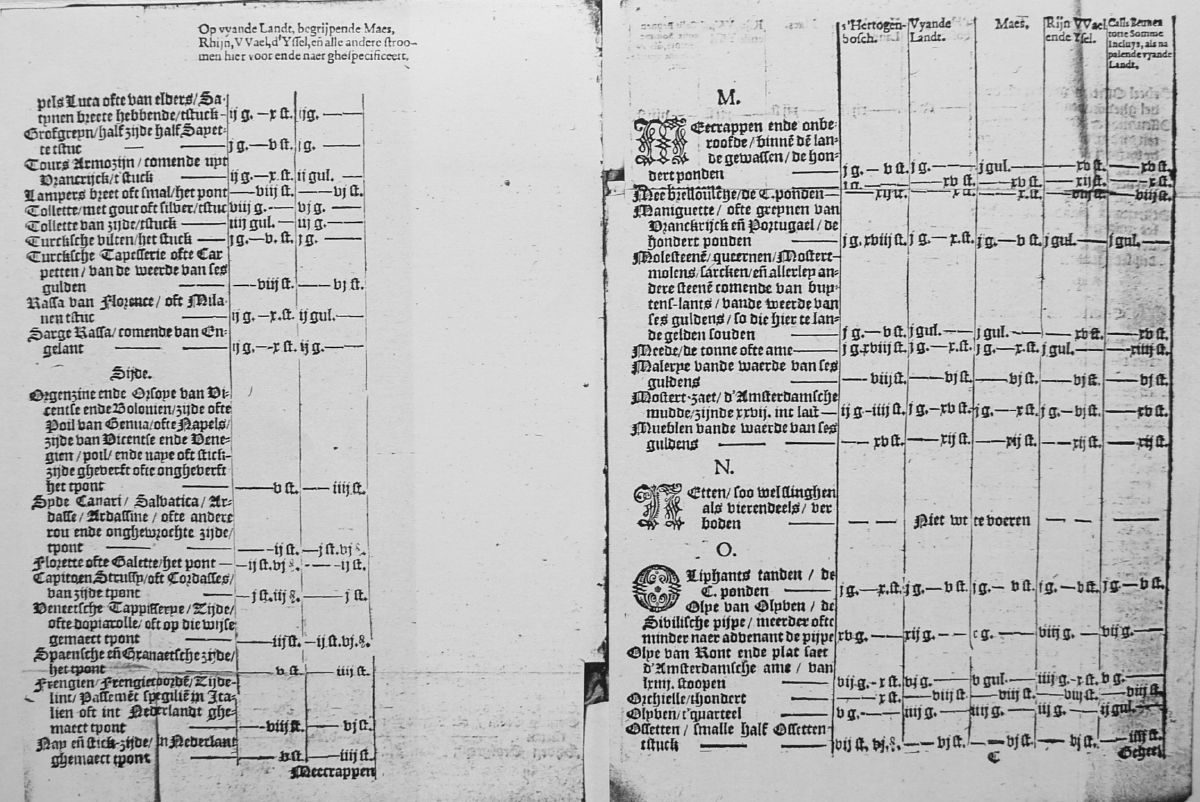 Op vyande Landt, begrijpende Maes,
Rhijn, VVael, d'Yssel, eñ alle andere stroo-
men hier voor ende naer ghespecificeert.
pels Luca ofte van elders/ Sa-
tynen breete hebbende/ tstuck- ij g. —x st. ijg. ——
Grofgreyn/ half zijde half Sayet-
te tstuc — j g.—v st. j g. ——
Tours Armozijn / comende uyt
Vranckrijck/ t'stuck — ij g.—x st. ij gul. ——
Lampers breet oft smal/ het pont —viij st. —vj st.
Tollette/ met gout oft silver/ tstuc viij g.—— vj g.——
Tollette van zijde/ tstuck —— iiij gul. —— iij g.——
Turcksche vilten/ het stuck —— j g.—v. st. j g. ——
Turcksche Tapesserie ofte Car
petten / van de weerde van ses
gulden —— ——viij st. ——vj st.
Rassa van Florence / oft Mila-
nen tstuc —— ij g. —x.st. ij gul.——
Sarge Rassa/ comende van En-
gelant —— —— ij g.—x st. ij g.——
Sijde.
Orgenzine ende Orsoye van Vi-
centse ende Bolonien/ zijde ofte
Poil van Genua/ ofte Napels/
zijde van Vicentse ende Vene-
gien / poil/ ende naye oft stick-
zijde gheverft ofte ongheverft
het tpont —— ——v st. ——iiij st.
Syde Canari / Salvatica / Ar-
dasse / Ardassine / ofte andere
rou ende onghewrochte zijde/
tpont —— —— ——ij st. —j st. vj
Florette ofte Galette/ het pont — —ij st. vj ——ij st.
Capitoen Strussy/ oft Cordasses/
van zijde tpont —— —j st. iij ——j st.
Veneetsche Tappisserye / Zijde/
ofte dopiacolle/ oft op die wijse
gemaect tpont —— ——iij st. —ij st. vj.
Spaensche eñ Granaetsche zijde/
het tpont —— ——v st. ——iiij st.
Frengien/ Frengiepoorde/ Zijde-
lint/ Passemēt in Ita-
lien oft int Nederlandt ghe-
maect tpont —— ——viij st. ——vj st.
Nay eñ stick-zijde/ in Nederlant
ghemaect tpont —— ——v st. ——iiij st.
Meecrappen
s'Hertogen-
bosch. Vyande
Landt. Maes, Rijn VVael
ende Yssel. Cassis Bernen
torte Somme
Incluys, als na
palende vyande
Landt.
M.
MEecrappen ende onbe-
roofde / binnē dē lan-
de gewassen / de hon-
dert ponden —— j g.— v st. j g.—— j gul.—— —xv st. —xv st.
Mee de C. ponden— —xv st. —xv st. —xij st. —x st.
Maniguette / ofte greynen van
Vranckrijck eñ Portugael / de
hondert ponden —— j g. xviij st. j g. — x.st. j g. — v st. j gul.—— j gul. ——
Molesteenē/ queernen/ Mostert-
molens/ sarcken/ eñ allerley an-
dere steenē comende van buy-
tens-lants / vande weerde van
ses guldens / so die hier te lan-
de gelden souden —— j g.— v st. j gul.—— j gul. —— —xv st. —xv st.
Meede/ de tonne ofte ame—— j g. xviij st. j g.—x.st. j g. — x.st. j gul.—— —xiiij st.
Malerye vande waerde van ses
guldens —— ——viij st. ——vj st. ——vj st. —vj st. ——vj st.
Mostert-zaet/ d'Amsterdamsche
mudde/ zijnde xxvij. int last — ij g—iiij st. j g.—xv st. j g.—x st. j g.—vj st. —xv st.
Mueblen vande waerde van ses
guldens —— —— ——xv st. ——xij st. ——xij st. —xij st. ——xij st.
N.
NEtten / soo welslinghen
als vierendeels / ver
boden —— — — Niet wt te voeren — — —
O.
OLiphants tanden / de
C. ponden —— j g.—x.st. j g. — v st. j g. — v st. j g.—v st. j g.—v st.
Olye van Olyven / de
Sibilische pijpe / meerder ofte
minder naer advenant de pijpe xv g.—— xij g. —— viij g.—— vij g.——
Olye van Ront ende plat saet
d'Amsterdamsche ame / van
lxiiij. stoopen —— vij g.-x st. vj g.—— v gul. —— iiij g.-x st. v g.——
Orchielle/ thondert —— ——x st. ——viij st. ——viij st. ——viij st. ——viij st.
Olyven/ t'quarteel —— v g.—— iiij g. —— iiij g. —— iij g. —— ij gul.——
Ossetten / smalle half Ossetten
tstuck —— —— vij st. vj. ——vj st. ——vj st. —vj st. —iiij st.
C Geheel